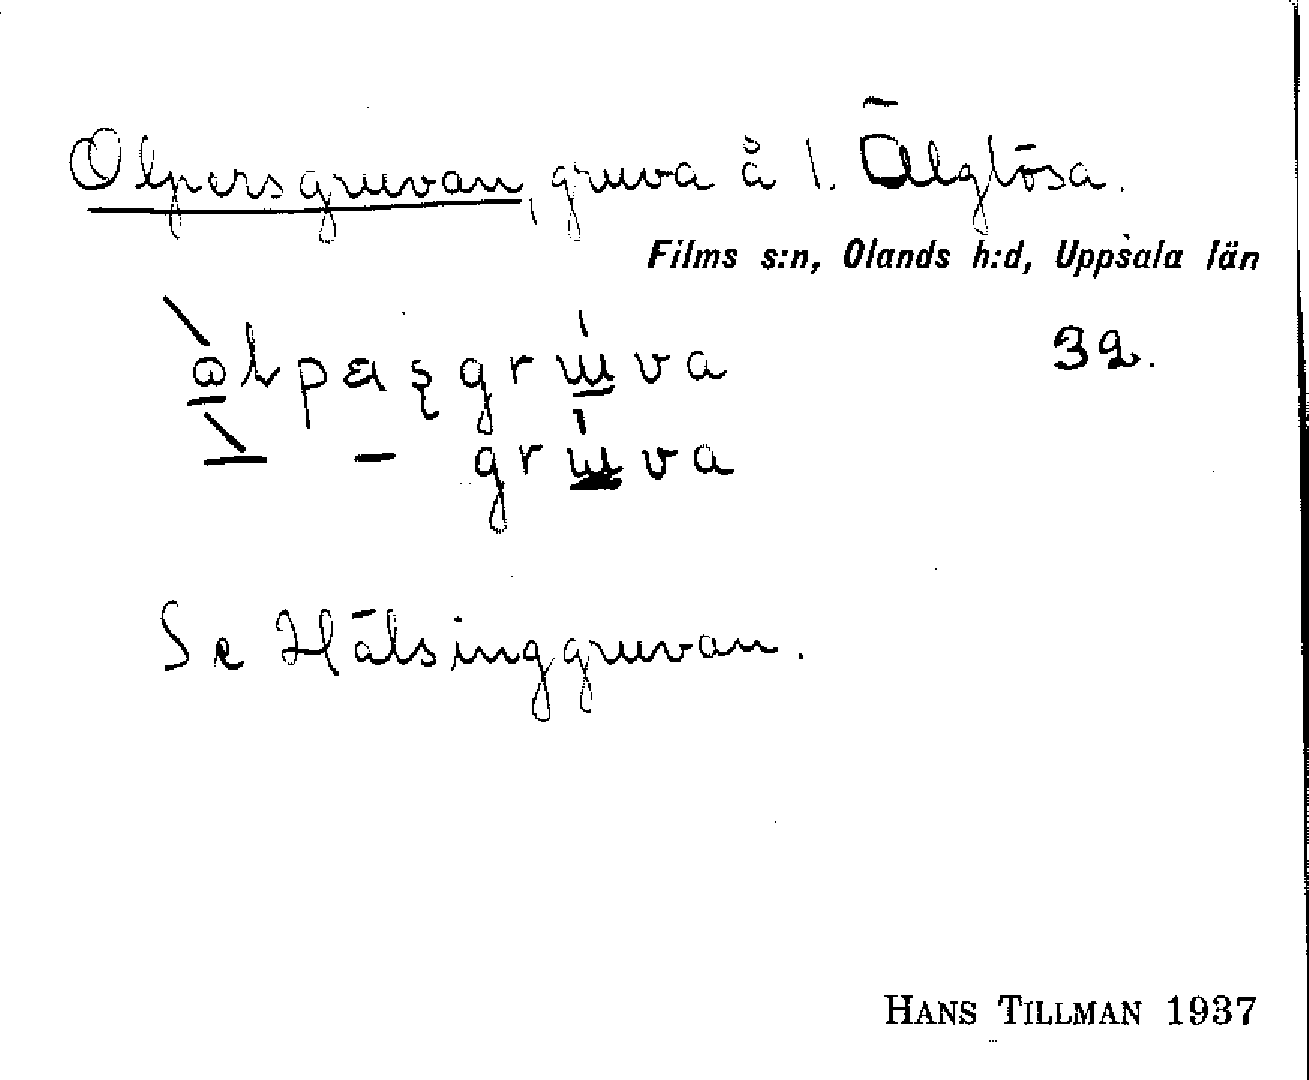 Olpersgruvan, gruva å 1. Älglösa.
Films s:n, Olands h:d, Uppsala län
32.
Se Hälsinggruvan.
HANS TILLMAN 1937